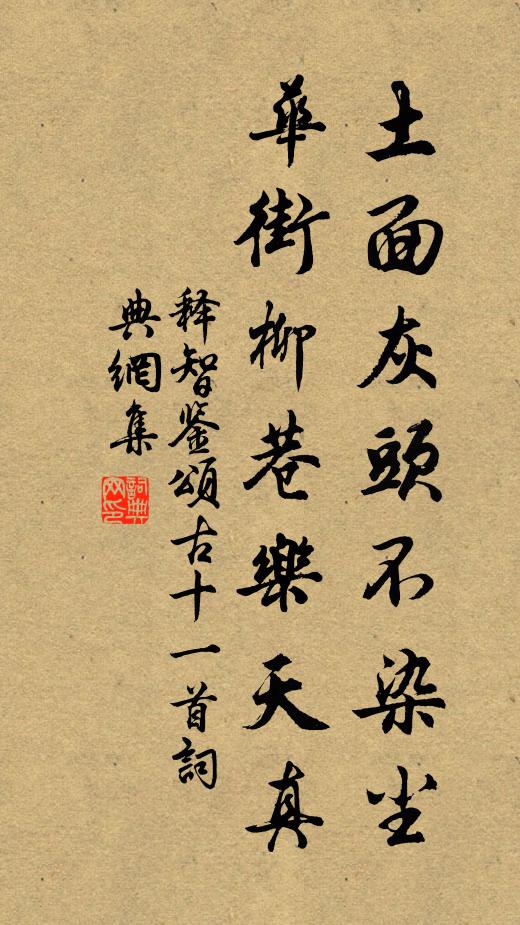 土面灰頭不染尘
華街柳巷樂天真
释智鉴頌古十一首詞
典網集
詞典网印